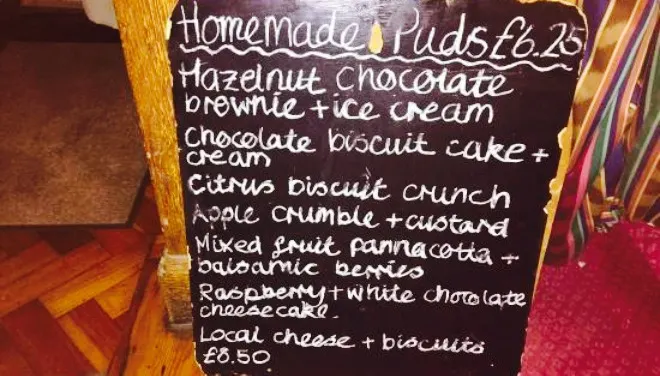 Homemade Puds £6.25
Hazelnut chocolate
brownie + ice cream
Chocolate biscuit cake +
cream
Citrus biscuit crunch
Apple crumble + custard
Mixed fruit pannacotta +
balsamic berries
Raspberry + white chocolate
cheesecake.
Local cheese + biscuits
£8.50